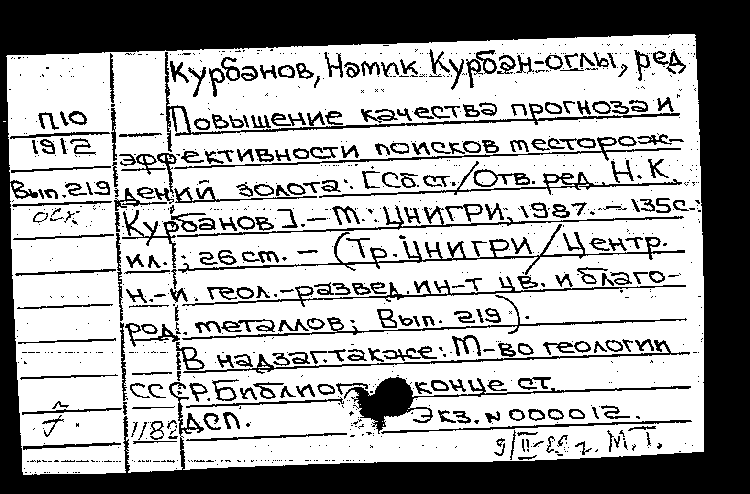 Курбанов, Намик Курбан-оглы, ред
П10 Повышение качества прогноза и
1912 эффективности поисков месторож-
Вып.219 дений золота: [Сб.ст./Отв.ред. Н.К.
оск Курбанов]. – М.: ЦНИГРИ, 1987. – 135с.:
ил.; 26см. – (Тр. ЦНИГРИ/Центр.
н.-и. геол.-развед. ин-т цв. и благо-
род. металлов; Вып. 219).
В надзаг. также: М-во геологии
СССР. Библиогр. конце ст.
1182 ДСП. Экз. №000012.
М.Т.